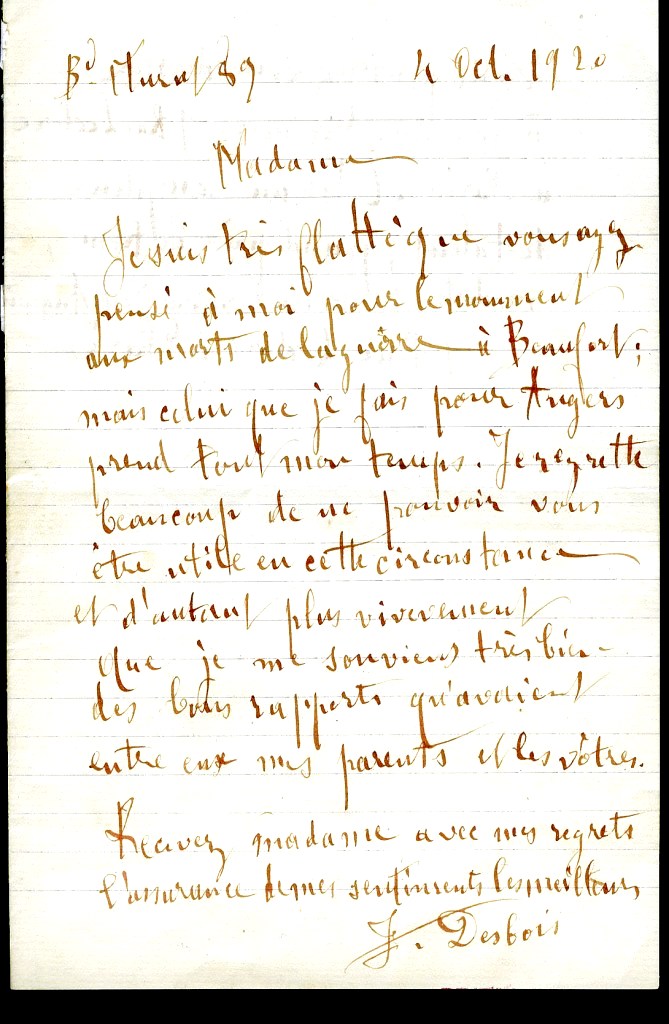 Bd Murat 89 4 Oct. 1920
Madame
Je suis très flatté que vous ayez
pensé à moi pour le monument
aux morts de la guerre à Beaufort ;
mais celui que je fais pour Angers
prend tout mon temps. Je regrette
beaucoup de ne pouvoir vous
être utile en cette circonstance
et d'autant plus vivement
que je me souviens très bien
des bons rapports qu'avaient
entre eux mes parents et les vôtres.
Recevez madame avec mes regrets
l'assurance de mes sentiments les meilleurs
J. Desbois